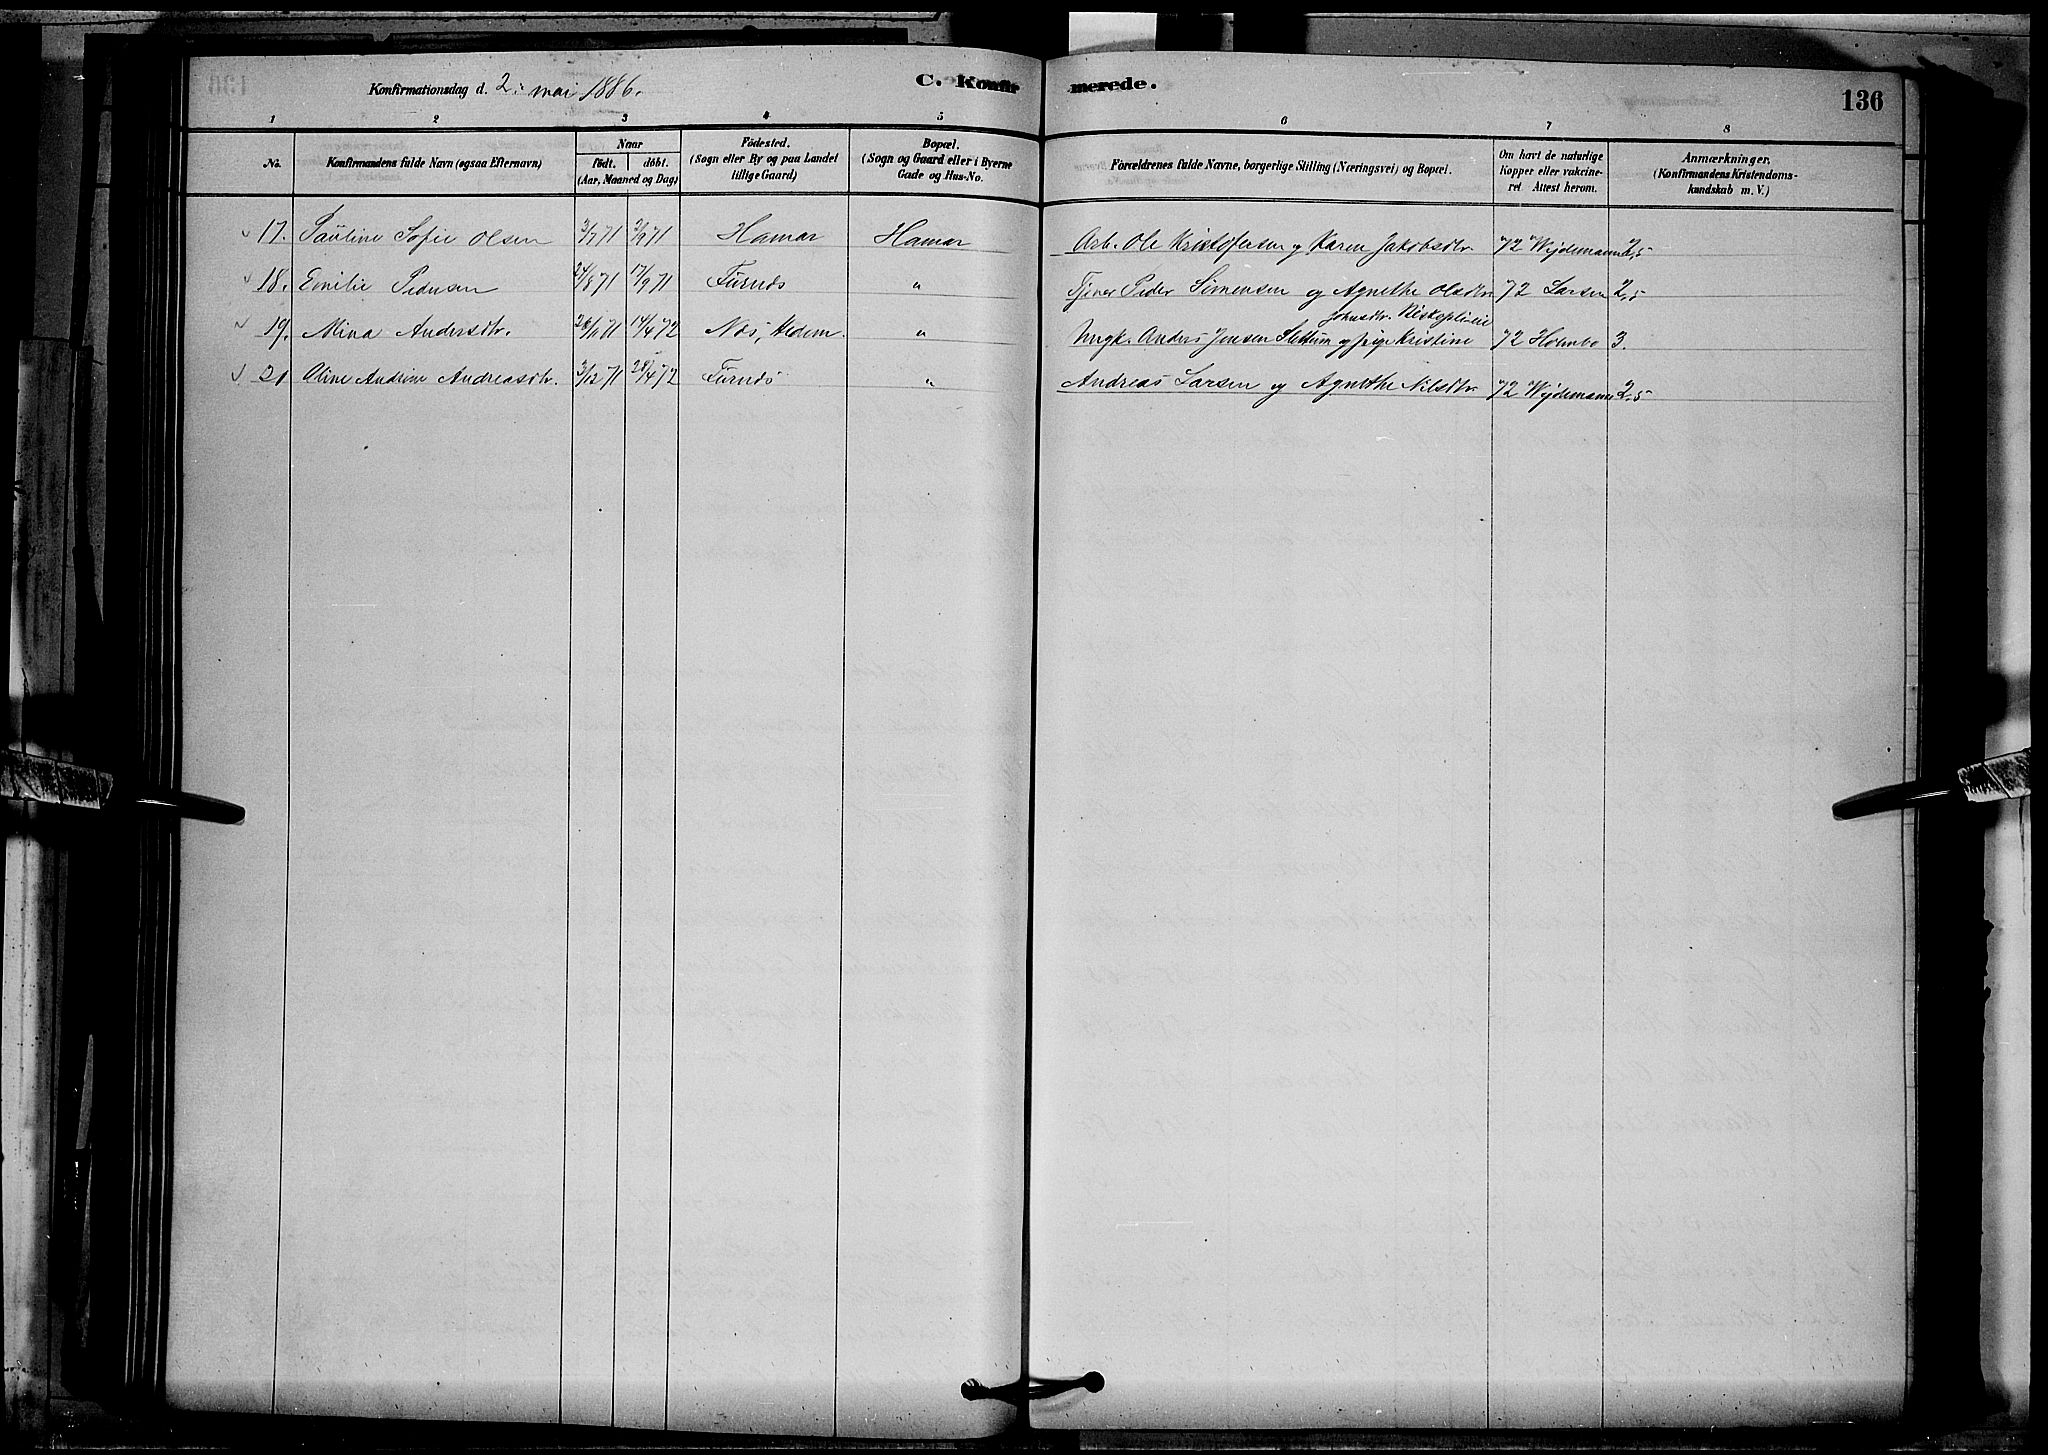 Konfirmationsdag d. 2. mai 1886.
C. Konfirmerede.
136
1 2 3 4 5 6 7 8
No.
Konfirmandens fulde Navn (ogsaa Efternavn)
Naar
født. døbt.
(Aar, Maaned og Dag)
Fødested.
(Sogn eller By og paa Landet
tillige Gaard)
Bopæl.
(Sogn og Gaard eller i Byerne
Gade og Hus-No.
Forældrenes fulde Navne, borgerlige Stilling (Næringsvei) og Bopæl.
Om havt de naturlige
Kopper eller vakcine-
ret. Attest herom.
Anmærkninger.
(Konfirmandens Kristendoms-
kundskab m. V.)
17. Pauline Sofie Olsen 3/7 71 3/9 71 Hamar Hamar Arb. Ole Kristofersen og Karen Jakobsdtr. 72 Wejdemann 2,5
18. Emilie Pedersen 24/8 71 17/9 71 Furnæs " Tjener Peder Simensen og Agnethe Olsdtr 72 Larsen 2,5
Johnsdtr.
19. Mina Andersdtr. /71 14/4 72 Næs, Hedem. " Ungk. Anders Jensen Slettum og pige Kristine 72 Holmbo 3.
20 Oline Andrine Andreasdtr. 3/12 71 28/4 72 Furnæs " Andreas Larsen og Agnethe Nilsdtr 72 Wejdemann 2,5